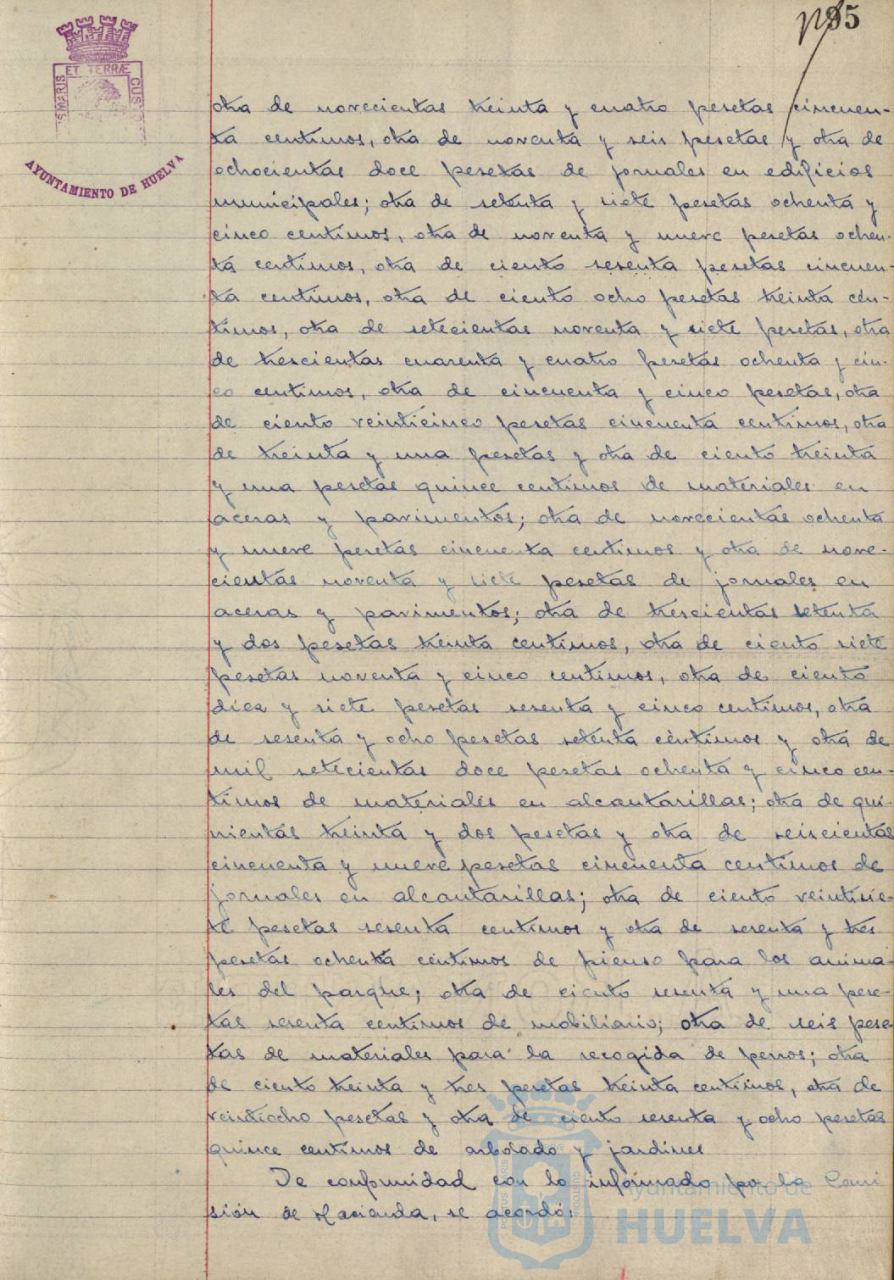 95
ET TERRÆ
AYUNTAMIENTO DE HUELVA
otra de novecientas treinta y cuatro pesetas cincuen-
ta centimos, otra de noventa y seis pesetas y otra de
ochocientas doce pesetas de jornales en edificios
municipales; otra de setenta y siete pesetas ochenta y
cinco centimos, otra de noventa y nueve pesetas ochen-
ta centimos, otra de ciento sesenta pesetas cincuen-
ta centimos, otra de ciento ocho pesetas treinta cen-
timos, otra de setecientas noventa y siete pesetas, otra
de trescientas cuarenta y cuatro pesetas ochenta y cin-
co centimos, otra de cincuenta y cinco pesetas, otra
de ciento veinticinco pesetas cincuenta centimos, otra
de treinta y una pesetas y otra de ciento treinta
y una pesetas quince centimos de materiales en
aceras y pavimentos; otra de novecientas ochenta
y nueve pesetas cincuenta centimos y otra de nove-
cientas noventa y siete pesetas de jornales en
aceras y pavimentos; otra de trescientas setenta
y dos pesetas treinta centimos, otra de ciento siete
pesetas noventa y cinco centimos, otra de ciento
diez y siete pesetas sesenta y cinco centimos, otra
de sesenta y ocho pesetas setenta centimos y otra de
mil setecientas doce pesetas ochenta y cinco cen-
timos de materiales en alcantarillas; otra de qui-
nientas treinta y dos pesetas y otra de seiscientas
cincuenta y nueve pesetas cincuenta centimos de
jornales en alcantarillas; otra de ciento veintisie-
te pesetas sesenta centimos y otra de sesenta y tres
pesetas ochenta centimos de pienso para los anima-
les del parque; otra de ciento sesenta y una pese-
tas sesenta centimos de mobiliario; otra de seis pese-
tas de materiales para la recogida de perros; otra
de ciento treinta y tres pesetas treinta centimos, otra de
veintiocho pesetas y otra de ciento sesenta y ocho pesetas
quince centimos de arbolado y jardines
De conformidad con lo informado por la Comi
sión de Hacienda, se acordó:
Ayuntamiento de
HUELVA